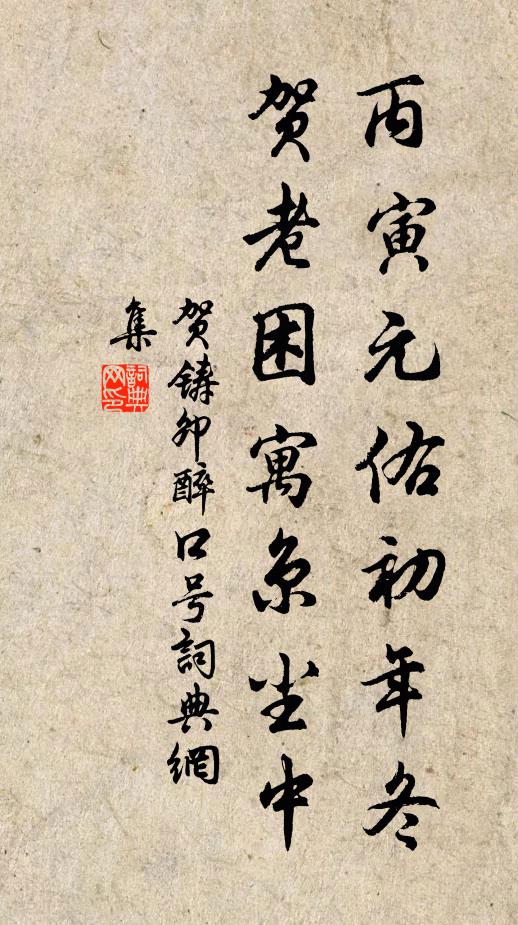 丙寅元佑初年冬
贺老困寓京尘中
贺铸卯醉口号詞典網
集
詞典網印